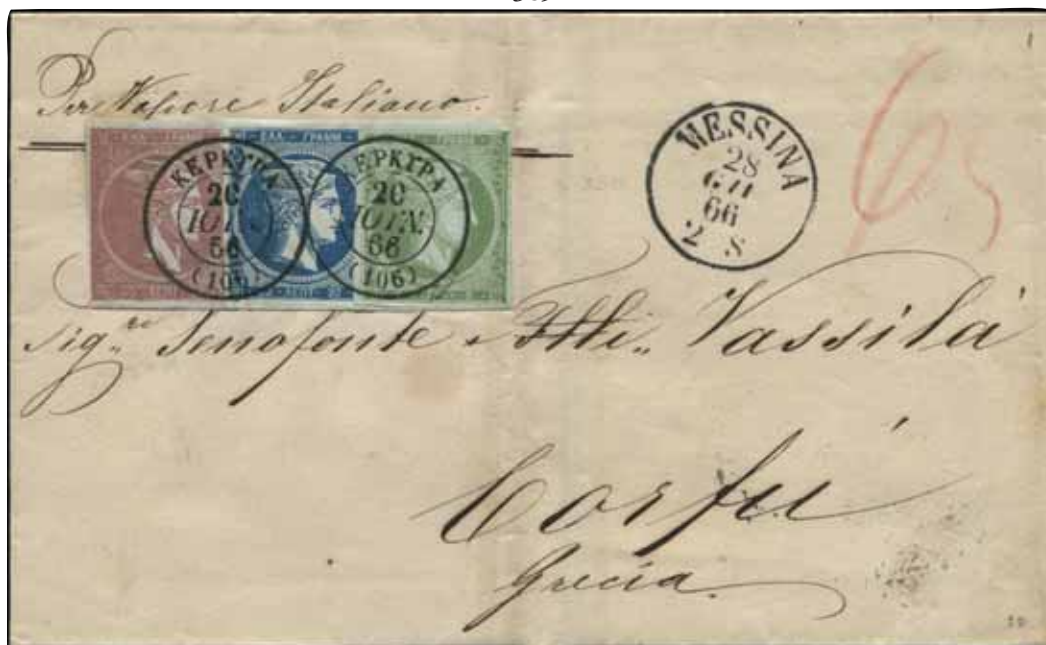 Per Vapore Italiano.
ΕΛΛ – ΓΡΑΜΜ
ΚΕΡΚΥΡΑ
20
ΙΟΥΝ.
66
(106)
ΚΕΡΚΥΡΑ
20
ΙΟΥΝ.
66
(106)
MESSINA
28
GIU
66
2 S
65
Sig.ri Senofonte e F.lli Vassilà
Corfù
Grecia